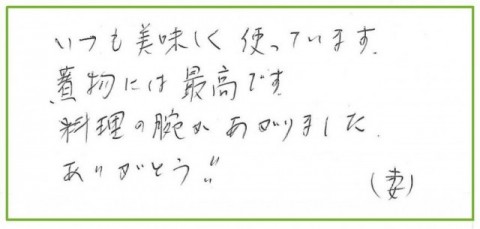 いつも美味しく使っています.
煮物には最高です
料理の腕があがりました.
ありがとう!!
(妻)